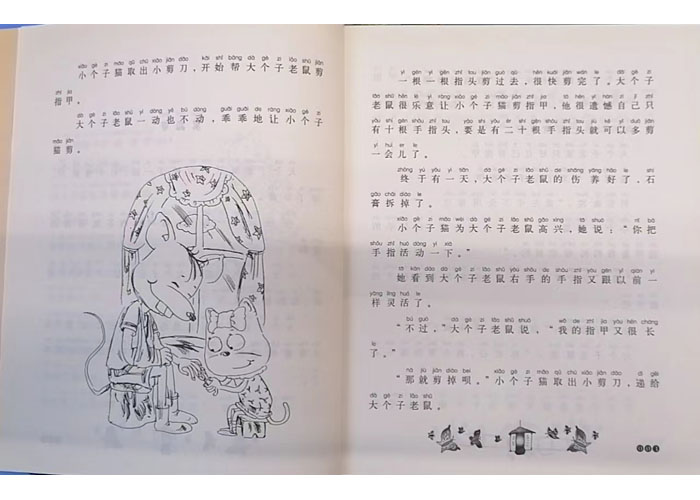 xiǎo gè zi māo qǔ chū xiǎo jiǎn dāo kāi shǐ bāng dà gè zi lǎo shǔ jiǎn
小个子猫取出小剪刀，开始帮大个子老鼠剪
zhǐ jia
指甲。
dà gè zi lǎo shǔ yí dòng yě bú dòng guāi guāi de ràng xiǎo gè zi
大个子老鼠一动也不动，乖乖地让小个子
māo jiǎn
猫剪。
yì gēn yì gēn zhǐ tou jiǎn guò qù hěn kuài jiǎn wán le dà gè zi
一根一根指头剪过去，很快剪完了。大个子
lǎo shǔ hěn lè yì ràng xiǎo gè zi māo jiǎn zhǐ jia tā hěn yí hàn zì jǐ zhǐ
老鼠很乐意让小个子猫剪指甲，他很遗憾自己只
yǒu shí gēn shǒu zhǐ tou yào shi yǒu èr shí gēn shǒu zhǐ tou jiù kě yǐ duō jiǎn
有十根手指头，要是有二十根手指头就可以多剪
yí huì er le
一会儿了。
zhōng yú yǒu yì tiān dà gè zi lǎo shǔ de shāng yǎng hǎo le shí
终于有一天，大个子老鼠的伤养好了，石
gāo chāi diào le
膏拆掉了。
xiǎo gè zi māo wèi dà gè zi lǎo shǔ gāo xìng tā shuō nǐ bǎ
小个子猫为大个子老鼠高兴，她说：“你把
shǒu zhǐ huó dòng yí xià
手指活动一下。”
tā kàn dào dà gè zi lǎo shǔ yòu shǒu de shǒu zhǐ yòu gēn yǐ qián yí
她看到大个子老鼠右手的手指又跟以前一
yàng líng huó le
样灵活了。
bú guò dà gè zi lǎo shǔ shuō wǒ de zhǐ jia yòu hěn cháng
“不过，”大个子老鼠说，“我的指甲又很长
le
了。”
nà jiù jiǎn diào bei xiǎo gè zi māo qǔ chū xiǎo jiǎn dāo dì gěi
“那就剪掉呗。”小个子猫取出小剪刀，递给
dà gè zi lǎo shǔ
大个子老鼠。